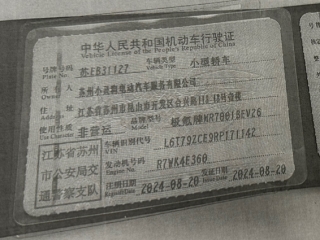 中华人民共和国机动车行驶证
Vehicle License of the People's Republic of China
号牌号码 苏EB31127 车辆类型 小型轿车
Plate No. Vehicle Type
所有人 苏州小灵狗电动汽车服务有限公司
Owner
住址 江苏省苏州市昆山市开发区合兴路118号
Address
使用性质 非营运 品牌型号 极氪牌MR7001BEV26
Use Character Model
江苏省苏州 车辆识别代号 L6T79ZCE9RP171142
VIN
市公安局交 发动机号码 R7WK4E360
Engine No.
通警察支队 注册日期 2024-08-20 发证日期 2024-08-20
Register Date Issue Date